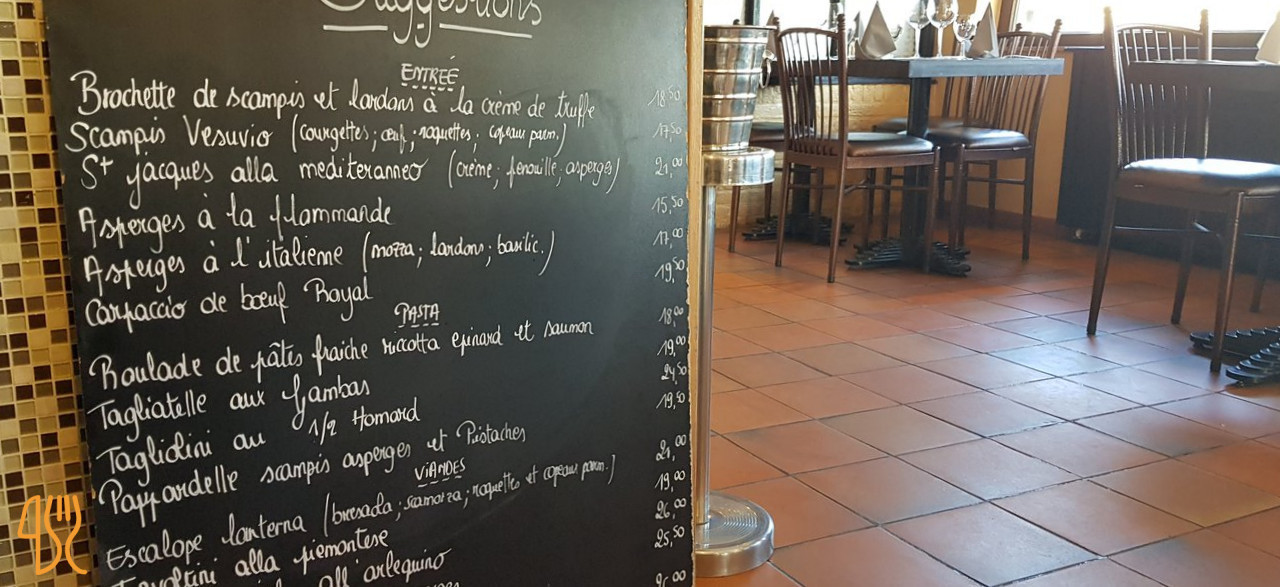 Suggestions
ENTREÉ
Brochette de scampis et lardons à la crème de truffe 18,50
Scampis Vesuvio (courgettes; œuf; roquettes; copeaux parm.) 17,50
St jacques alla mediteranneo (crème; fenouille; asperges) 21,00
Asperges à la flammande 15,50
Asperges à l'italienne (mozza; lardons; basilic.) 17,00
Carpaccio de bœuf Royal 19,50
PASTA
Roulade de pâtes fraiche riccotta epinard et saumon 18,00
Tagliatelle aux Gambas 19,00
Tagliolini au 1/2 Homard 24,50
Pappardelle scampis asperges et Pistaches 19,50
VIANDES
Escalope lanterna (bresada; scamorza; roquettes et copeaux parm.) 21,00
alla piemontese 19,00
all'arlequino 26,00
25,50